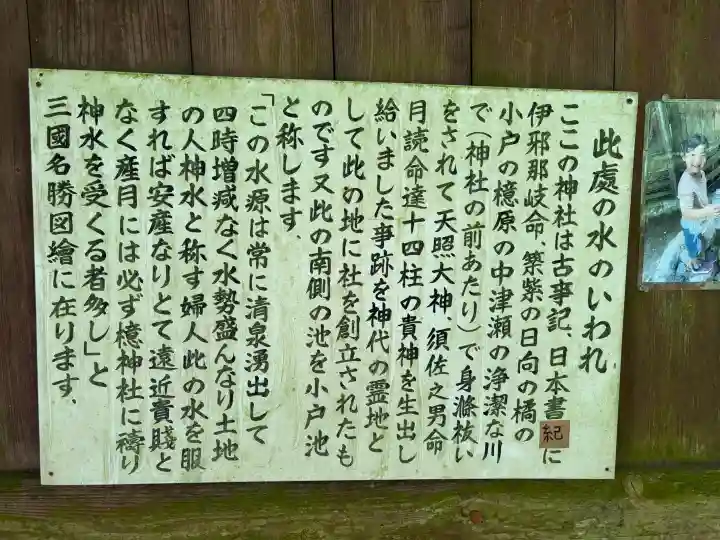 此處の水のいわれ
ここの神社は古事記、日本書紀に
伊邪那岐命、築紫の日向の橘の
小戸の檍原の中津瀬の浄潔な川
で(神社の前あたり)で身滌祓い
をされて天照大神須佐之男命
月読命達十四柱の貴神を生出し
給いました事跡を神代の霊地と
して此の地に社を創立されたも
のです又此の南側の池を小戸池
と称します、
「この水源は常に清泉湧出して
四時増減なく水勢盛んなり土地
の人神水と称す婦人此の水を服
すれば安産なりとて遠近貴賤と
なく産月には必ず檍神社に禱り
神水を受くる者多し」と
三國名勝図繪に在ります、